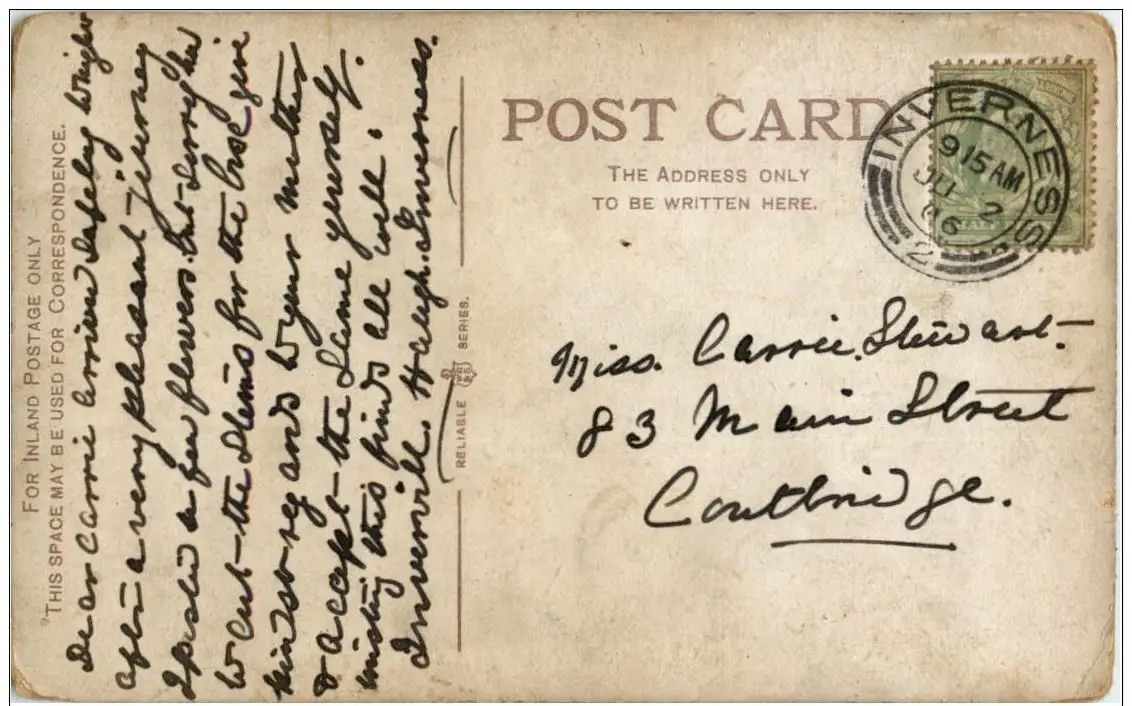 FOR INLAND POSTAGE ONLY
THIS SPACE MAY BE USED FOR CORRESPONDENCE.
Dear Carrie arrived safely
after a very pleasant journey
I posted a few flowers. but sorry
to cut the stems for the box give
kindso regards to your mother
& accept the same yourself.
this finds all well.
Haugh. Inverness.
RELIABLE SERIES.
POST CARD
THE ADDRESS ONLY
TO BE WRITTEN HERE.
INVERNESS
9 15 AM
JU 2
06
2
Miss. Carrie. Stewart.
83 Main Street
Coatbridge.